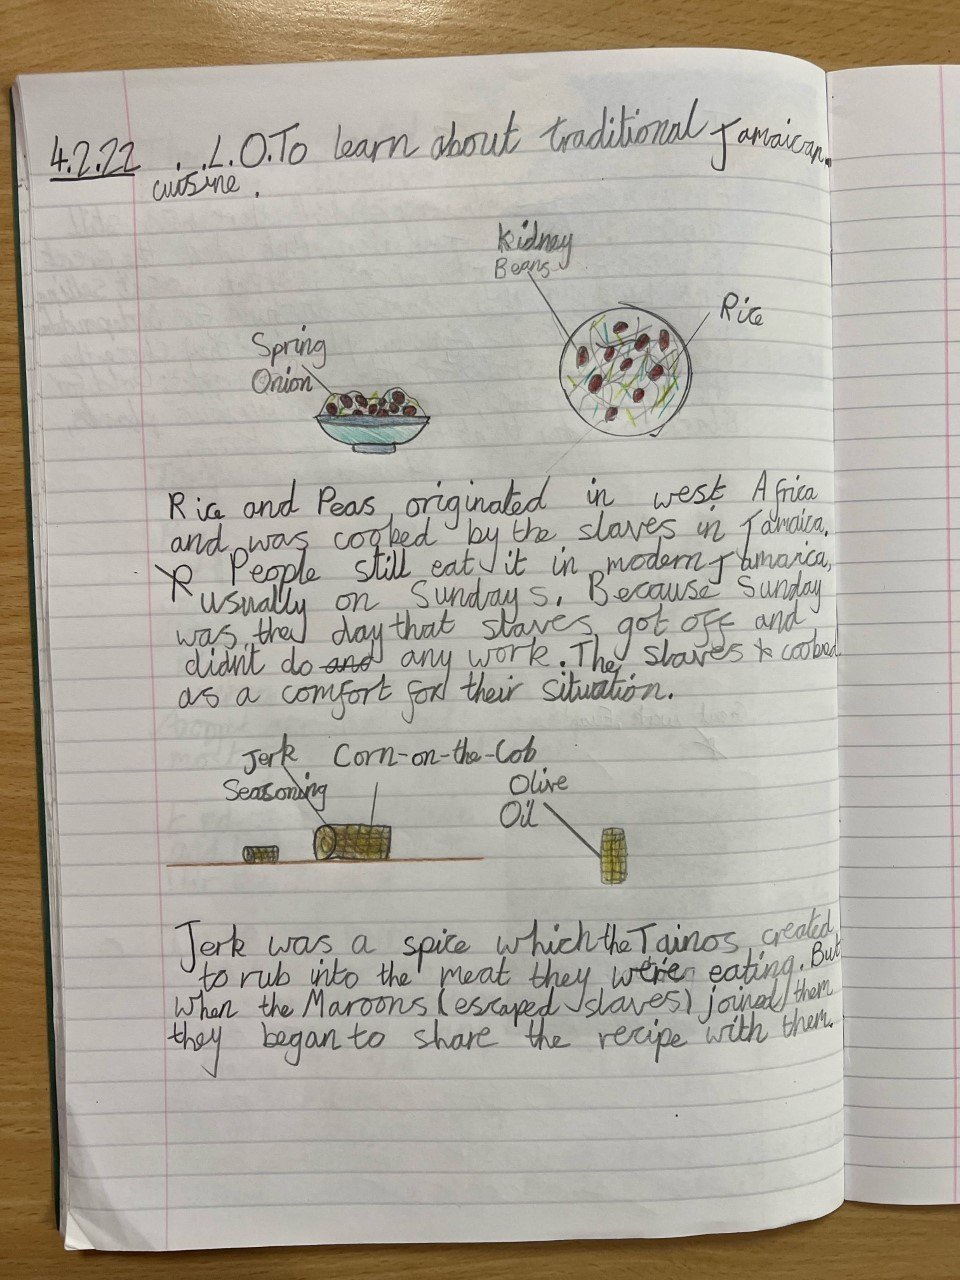 4.2.22 . .L.O.To learn about traditional Jamaican.
cuisine.
Kidney
Beans
Rice
Spring
Onion
Rice and Peas originated in west Africa
and was cooked by the slaves in Jamaica.
R People still eat it in modern Jamaica,
usually on Sundays. Because Sunday
was the day that slaves got off and
didn't do and any work. The slaves cooked
as a comfort for their situation.
Jerk Corn-on-the-Cob
Seasoning
Olive
Oil
Jerk was a spice which the Tainos created
to rub into the meat they were eating. But
when the Maroons (escaped slaves) joined them
they began to share the recipe with them.